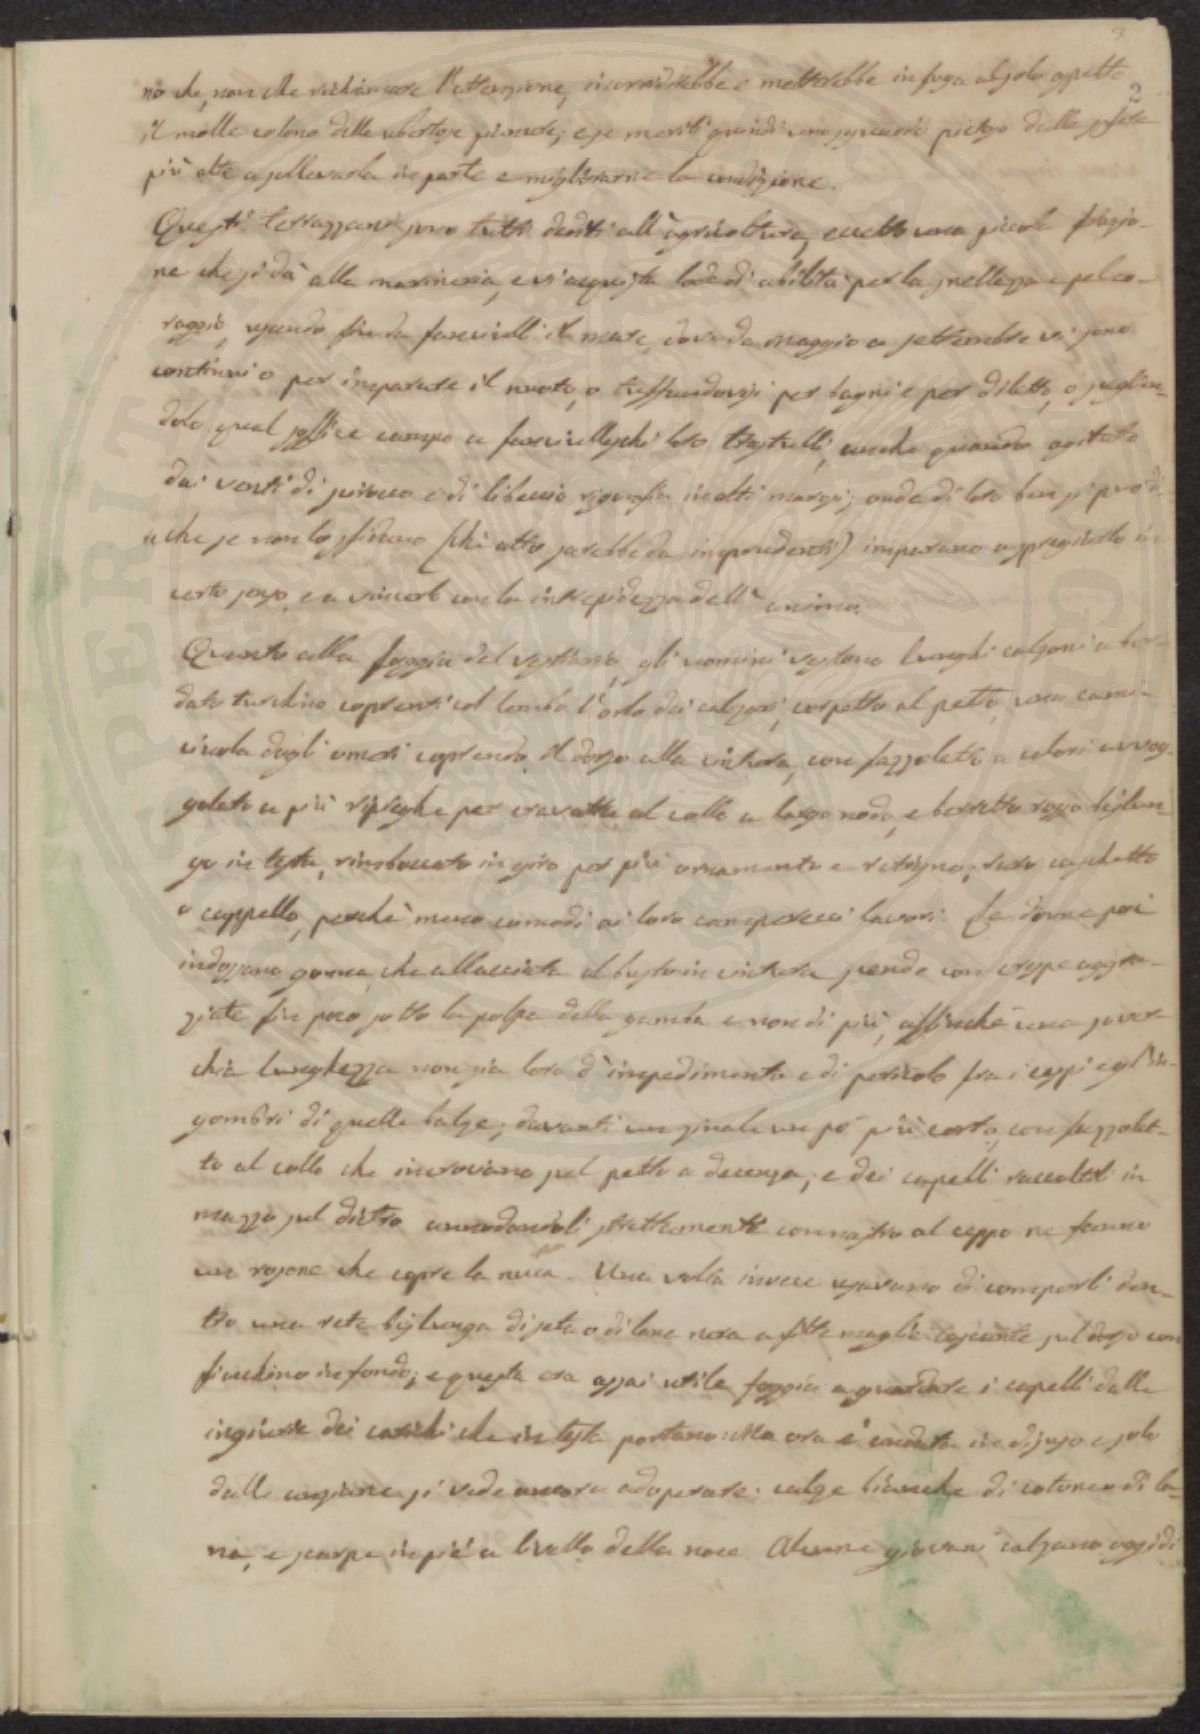 2
no che, non che richiamare l'attenzione, incresdirebbe e metterebbe in fuga al solo aspetto
il molle colono delle ubertose pianure; e se meriti quindi uno sguardo pietoso dalle sfere
più alte a sollevarla in parte e migliorarne la condizione.
Questi terrazzani sono tutti dediti all'agricoltura, eccetto una piccola frazio-
ne che si dà alla marineria, e vi acquista lode di abilità per la snellezza e pel co-
raggio, usando fin da fanciulli il mare, dove da maggio a settembre vi sono
continui o per imparare il nuoto, o tuffandovisi per bagni e per diletto, o sceglien-
dolo qual soffice campo a fanciulleschi loro trastulli, anche quando agitato
dai venti di scirocco e di libeccio rigonfia in alti marosi; onde di loro ben si può di-
re che se non lo sfidano (chè atto sarebbe da imprudenti) imparano a spregiarlo in
certo senso, e a vincerlo con la intrepidezza dell'animo.
Quanto alla foggia del vestiario, gli uomini vestono lunghi calzoni a bor-
dato turchino coprenti col lembo l'orlo dei calzari, corpetto al petto, una cami-
ciuola dagli omeri coprendo il dorso alla cintura, con fazzoletto a colori avvog-
golato a più ripieghe per cravatta al collo a largo nodo, e berretto rosso bislun-
go in testa, rimboccato in giro per più ornamento e ritegno; raro caschetto
o cappello, perchè meno comodi ai loro camperecci lavori. Le donne poi
indossano gonna, che allacciata al busto in cintura scende con crespe aggra-
ziate fin poco sotto la polpa della gamba e non di più, affinchè una sover-
chia lunghezza non sia loro d'impedimento e di pericolo fra i ceppi e gl'in-
gombri di quelle balze; davanti un zinale un pò più corto, con fazzolet-
to al collo che incrociano sul petto a decenza; e dei capelli raccolti in
mazzo sul dietro annodandoli strettamente con nastro al ceppo ne fanno
un rosone che copre la nuca. Una volta invece usavano di comporli den-
tro una rete bislunga di seta o di lana nera a fitte maglie cascante sul dorso con
fiocchino in fondo; e questa era assai utile foggia a guardare i capelli dalle
ingiurie dei carichi che in testa portano: Ma ora è andata in disuso e solo
dalle anziane si vede ancora adoperare: calze bianche di cotone o di la-
na, e scarpe in piè a livello della noce. Alcune giovani calzano oggidì